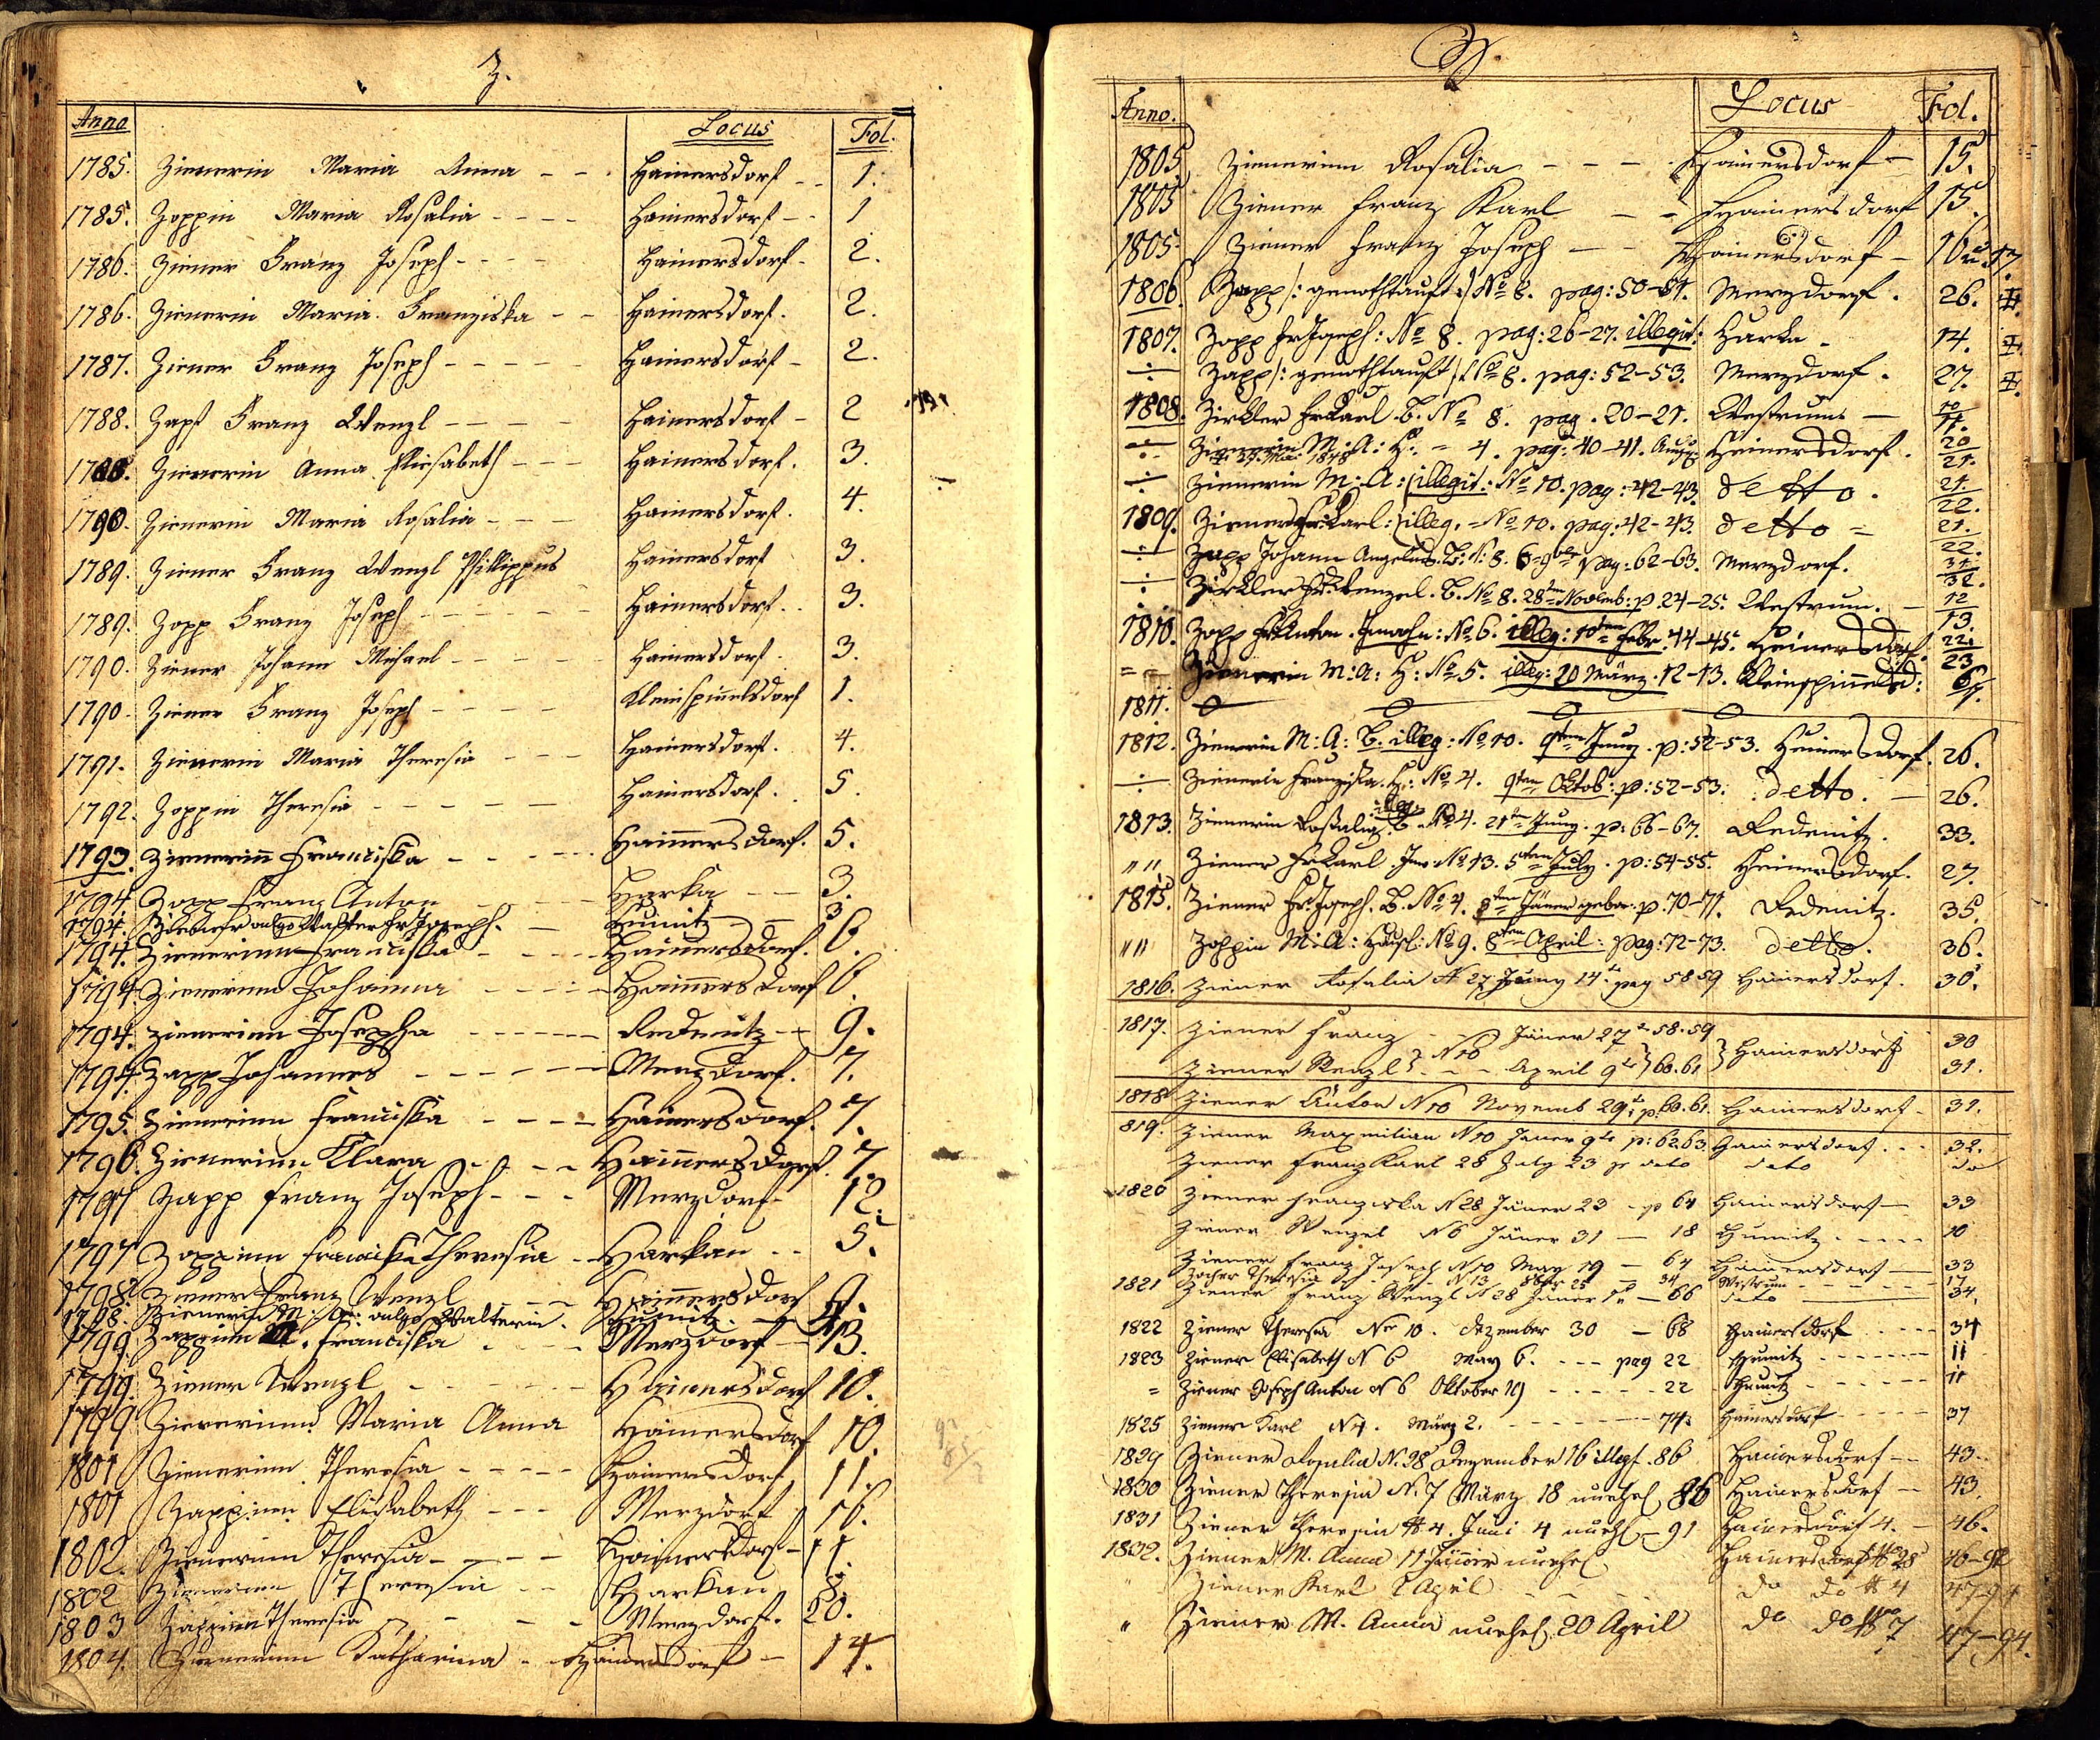 Z.
Anno Locus Fol.
1785. Zienerin Maria Anna - - Hainersdorf - - 1.
1785. Zoppin Maria Rosalia - - - - Hainersdorf - - 1
1786. Ziener Franz Joseph - - - - Hainersdorf - 2.
1786. Zienerin Maria Franziska - - Hainersdorf. 2.
1787. Ziener Franz Joseph - - - - - Hainersdorf - 2.
1788. Zapf Franz Wenzl - - - - - Hainersdorf - 2
1788. Zienerin Anna Elisabeth - - - Hainersdorf. 3.
1790. Zienerin Maria Rosalia - - - Hainersdorf. 4.
1789. Ziener Franz Wenzl Phillippus Hainersdorf 3.
1789. Zopp Franz Joseph - - - - - Hainersdorf. . 3.
1790. Ziener Johann Michael - - - - - Hainersdorf. 3.
1790. Ziener Franz Joseph - - - - Kleinspinelsdorf 1.
1791. Zienerin Maria Theresia - - - Hainersdorf. 4.
1792. Zoppin Theresia - - - - - - Hainersdorf. . 5.
1793. Zienerinn Franciska - - - - - Hainnersdorf. 5.
1794 Zopp Franz Anton - - - Harka - - 3.
1794. vulgo Walter Fr Joseph. - Hunitz - 3
1794. Zienerinn Franciska - - - - Hainnersdorf. 6.
1794 Zienerinn Johanna - - - - Hainnersdorf 6.
1794. Zienerinn Josepha - - - - - - Redenitz - - 9.
1794 Zapp Johannes - - - - - - Merzdorf. 7.
1795. Zienerinn Franciska - - - - Hainersdorf. 7.
1796 Zienerinn Klara - - - - Hainnersdorf. 7.
1797 Zapp Franz Joseph - - - Merzdorf - 12.
1797 Zoppinn Franciska Theresia - Harkau - - 5.
1798 Ziener Franz Wenzl - - Hainnersdorf 9.
1798. Zienerin M: vulgo Walterin. Hunitz. - 4.
1799. Zappinn M. Franciska - - - Merzdorf - 13.
1799. Ziener Wenzl - - - - - - Hainersdorf 10.
1799 Zienerinn Maria Anna Hainersdorf 10.
1801 Zienerinn Theresia - - - - - Hainersdorf 11.
1801 Zappinn Elisabeth - - - Merzdorf 16.
1802. Zienerinn Theresia - - - - Hainersdorf - 11.
1802 Zienerinn Theresia - - Harkau 8.
1803 Zappinn Theresia - - - Merzdorf. 20.
1804. Zienerinn Katharina - - Hainersdorf - 14.
Anno. Locus Fol.
1805. Zienerinn Rosalia - - - - Hainersdorf - 15.
1805 Ziener Franz Karl - - Hainersdorf 15.
1805. Ziener Franz Joseph - - - Hainersdorf - 16 u 17.
1806. Zapp /: genothtauft :/ No 8. pag: 50-51. Merzdorf. 26.
1807. Zopp Fr Joseph: No 8. pag: 26-27. illegit: Harka - 14.
÷ Zapp /: genothtauft No 8. pag: 52-53. Merzdorf. 27.
1808. Zirkler Fr Karl. B. No 8. pag. 20-21. Westrum - 10 11.
÷ Zienerin M: A: H: = 4. pag: 40-41. Heinersdorf. 20 21.
÷ Zienerin M: A: /illegit: No 10. pag: 42-43. detto. 21. 22.
1809. Ziener Fr Karl: illeg. = No 10. pag: 42-43. detto = 21. 22.
÷ Zapp Johann Angelus. B: N: 8. pag: 62-63. Merzdorf. 31 32.
÷ Zirkler Fr Wenzel. B. No 8. 28ten Novemb: p. 24-25. Westrum. - 12 13.
1810. Zopp Fr Anton. No 6. illeg: 10ten Febr. 44-45. Heinersdorf. 22. 23
= = Zienerin M: A: H: No 5. illeg: 20 März. 12-13. Kleinspinelsd: 6/7.
1811. 0 0 0 0
1812. Zienerin M: A: B. illeg: No 10. 9ten Juny. p: 52-53. Heinersdorf. 26.
÷ Zienerin Franziska. H: No 4. 9ten Oktob: p: 52-53. detto. - 26.
1813. Zienerin Rosalia. illeg: B. No 4. 21ten Juny. p: 66-67. Redenitz. 33.
" " Ziener Fr Karl. Inw: No 13. 5ten July. p: 54-55. Heinersdorf. 27.
1815. Ziener Fr Joseph. B. No 4. 8ten Jäner gebor. p. 70-71. Redenitz. 35.
" " Zoppin M: A: Häusl: No 9. 8ten April: pag: 72-73. detto. 36.
1816. Ziener Rosalia N 27 Juny 14te pag 58 59 Hainersdorf. 30.
1817. Ziener Franz - - Jäner 27te 58. 59 30
Ziener Wenzl } N 10 - - - April 9te } 60. 61 } Hainersdorf 31.
1818 Ziener Anton N 10 Novemb 29te p. 60. 61. Hainersdorf - 31.
819. Ziener Maxmilian N 10 Jäner 9te p: 62. 63. Hainersdorf. - - 32.
Ziener Franz Karl 28 July 23 p deto deto do
1820 Ziener Franziska N 28 Jäner 23 - p 64 Hainersdorf - 33
Ziener Wenzel N 6 Jäner 31 - 18 Hunitz - - - - 10
Ziener Franz Joseph N 10 May 19 - 64 Hainersdorf - 33
Zocher Theresia - - - N 13 8ber 25 - 34 Westrum - - - - 17
1821 Ziener Franz Wenzl N 28 Jäner 1te - 66 deto 34.
1822 Ziener Theresia No 10. Dezember 30 - 68 Hainersdorf - - - - 34
1823 Ziener Elisabeth N 6 May 6. - - - pag 22 Hunitz - - - - - - 11
= Ziener Joseph Anton N 6 Oktober 19 - - - - - 22 Hunitz - - - - - - 11
1825 Ziener Karl N 4. März 2. - - - - - - - 74. Hainersdorf - - - - - 37
1829 Ziener Rosalia N. 28 Dezember 16 illegt. 86 Hainersdorf - - 43.
1830 Ziener Theresia N. 7 März 18 unehel 86 Hainersdorf - - 43.
1831 Ziener Theresia N 4. Juni 4 unehl - 91 Hainersdorf 4. - 46.
1832. Ziener M. Anna 11 Jänner unehel Hainersdorf No 28 46-92
" Ziener Karl 2 April - - - do do N 4 47-94
" Ziener M. Anna unehel. 20 April do do No 7 47-94.